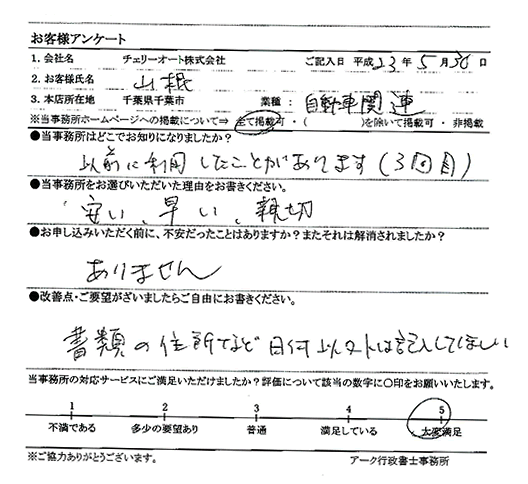 お客様アンケート
1. 会社名 チェリーオート株式会社 ご記入日 平成23年5月30日
2. お客様氏名 山根
3. 本店所在地 千葉県千葉市 業種： 自動車関連
※当事務所ホームページへの掲載について⇒ 全て掲載可 ・（ ）を除いて掲載可 ・ 非掲載
●当事務所はどこでお知りになりましたか？
以前に利用したことがあります（3回目）
●当事務所をお選びいただいた理由をお書きください。
安い、早い、親切
●お申し込みいただく前に、不安だったことはありますか？またそれは解消されましたか？
ありません
●改善点・ご要望がざいましたらご自由にお書きください。
書類の住所など日付以外は記入してほしい
当事務所の対応サービスにご満足いただけましたか？評価について該当の数字に〇印をお願いいたします。
1 2 3 4 5
不満である 多少の要望あり 普通 満足している 大変満足
※ご協力ありがとうございます。 アーク行政書士事務所